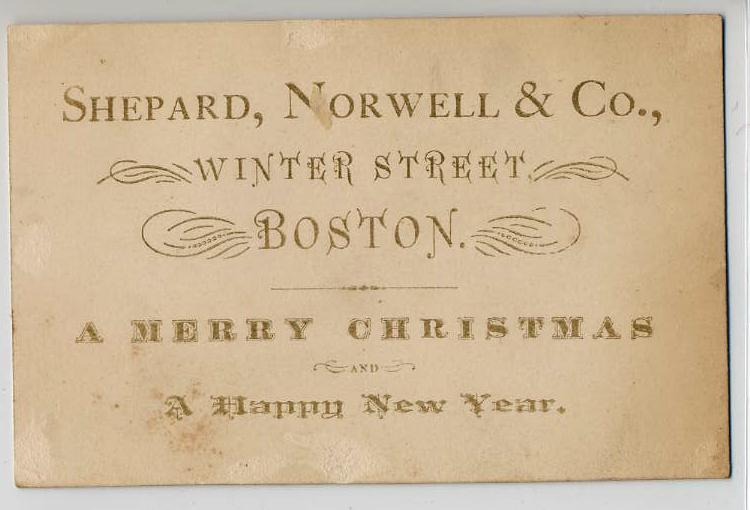 Shepard, Norwell & Co.,
WINTER STREET,
BOSTON.
A MERRY CHRISTMAS
AND
A Happy New Year.